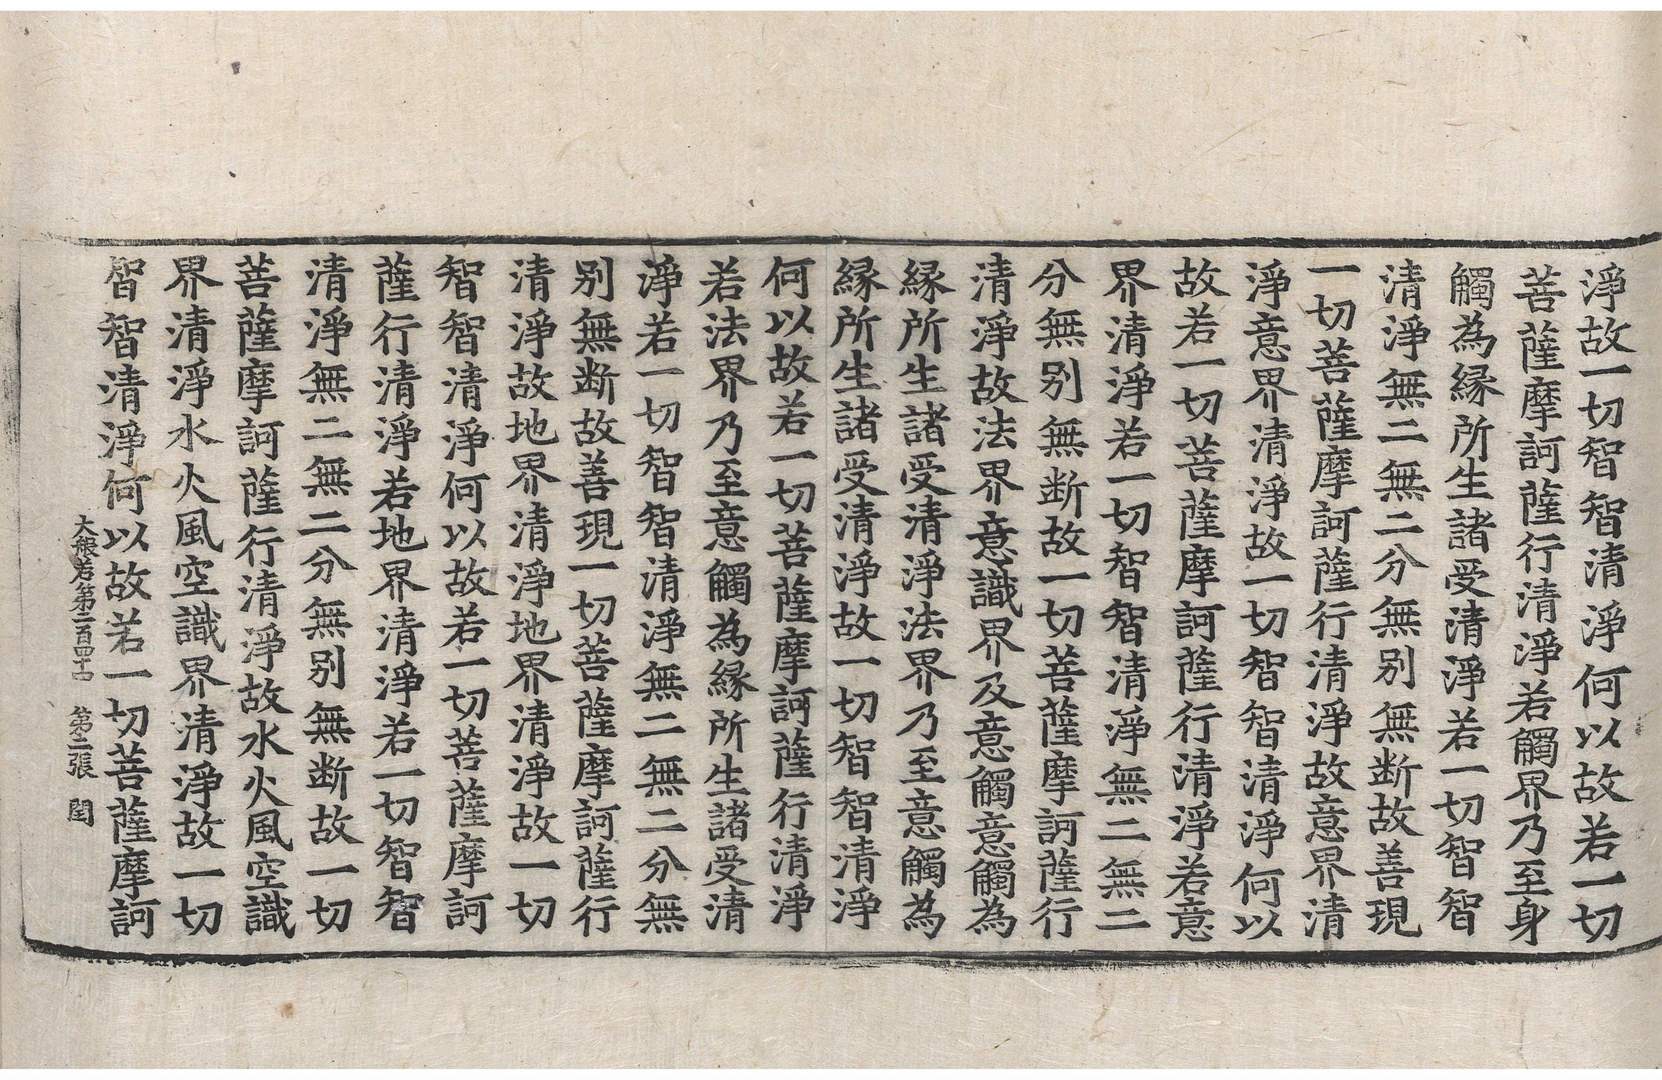 淨故一切智智清淨何以故若一切
菩薩摩訶薩行清淨若觸界乃至身
觸為緣所生諸受清淨若一切智智
清淨無二無二分無别無断故善現
一切菩薩摩訶薩行清淨故意界清
淨意界清淨故一切智智清淨何以
故若一切菩薩摩訶薩行清淨若意
界清淨若一切智智清淨無二無二
分無别無断故一切菩薩摩訶薩行
清淨故法界意識界及意觸意觸為
緣所生諸受清淨法界乃至意觸為
緣所生諸受清淨故一切智智清淨
何以故若一切菩薩摩訶薩行清淨
若法界乃至意觸為緣所生諸受清
淨若一切智智清淨無二無二分無
别無断故善現一切菩薩摩訶薩行
清淨故地界清淨地界清淨故一切
智智清淨何以故若一切菩薩摩訶
薩行清淨若地界清淨若一切智智
清淨無二無二分無别無断故一切
菩薩摩訶薩行清淨故水火風空識
界清淨水火風空識界清淨故一切
智智清淨何以故若一切菩薩摩訶
大般若第二百四十 第二張